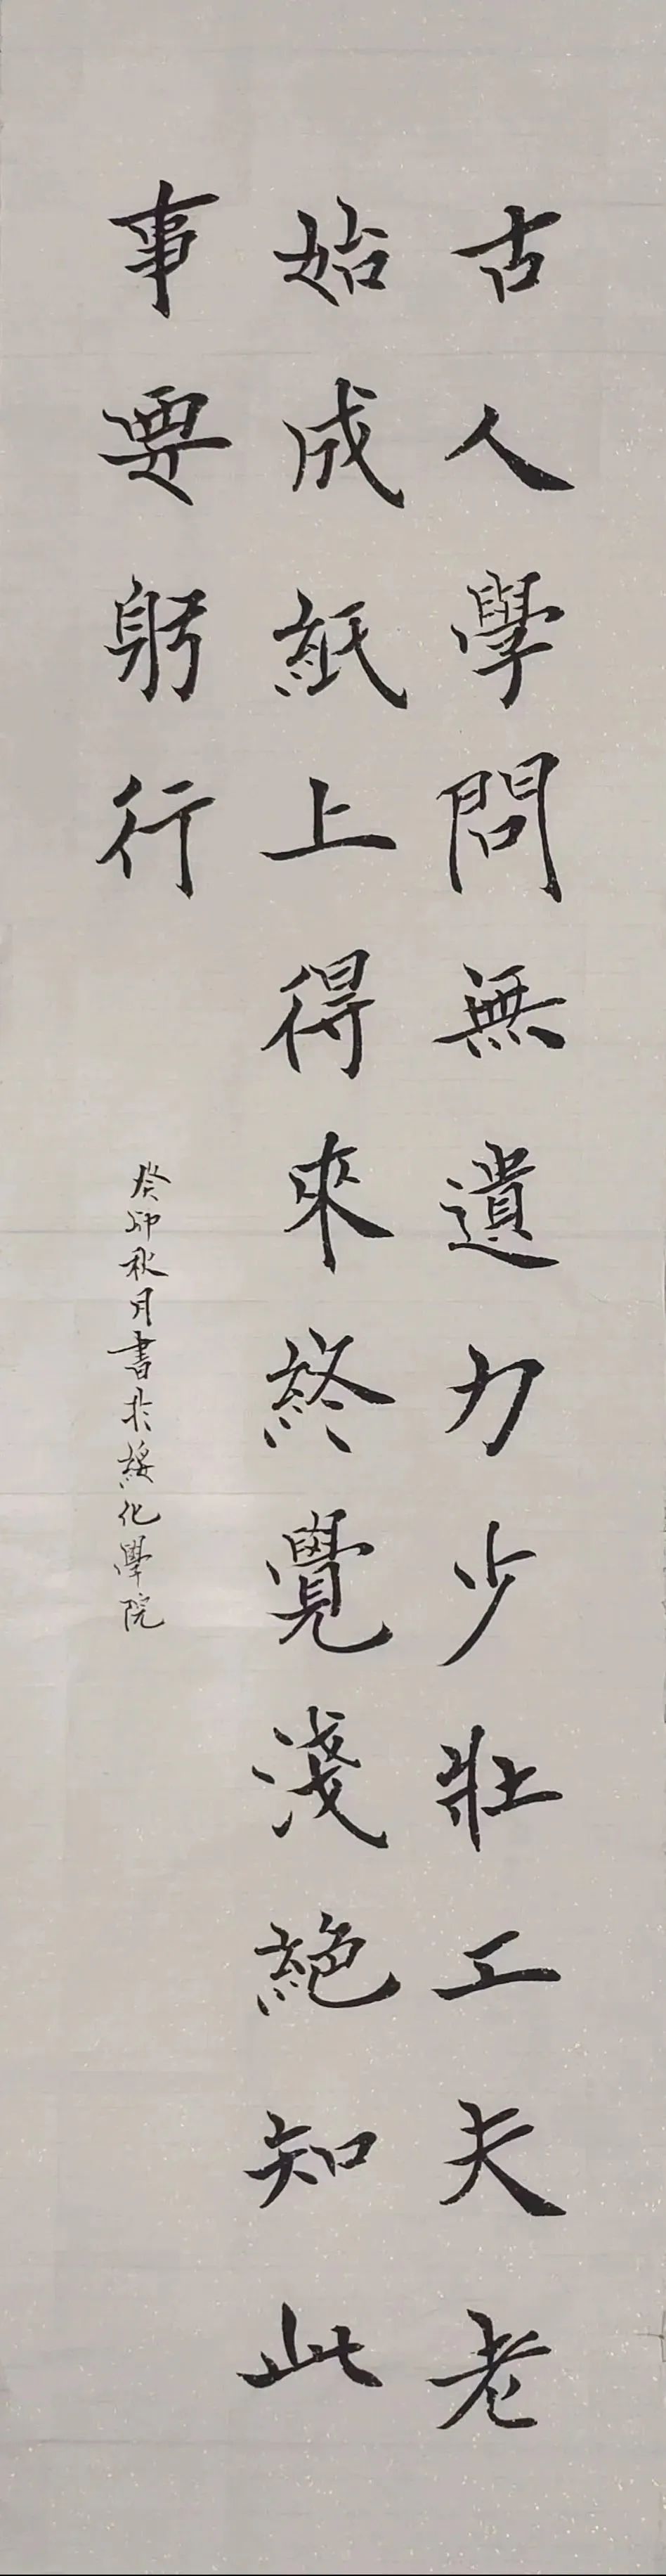 古人學問無遺力少壯工夫老
始成紙上得來終覺淺絕知此
事要躬行
癸卯秋月書於綏化學院